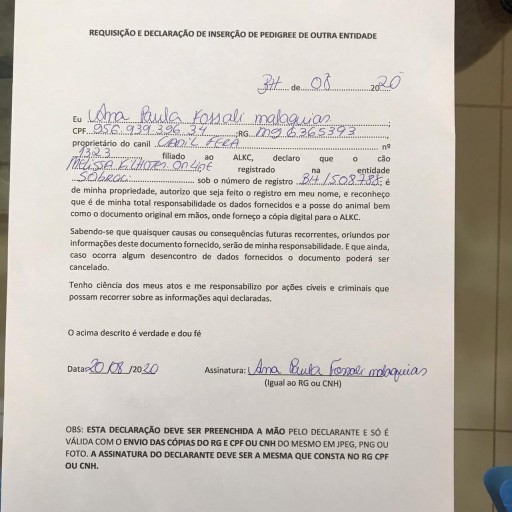 REQUISIÇÃO E DECLARAÇÃO DE INSERÇÃO DE PEDIGREE DE OUTRA ENTIDADE
BH de 08 2020
Eu Ana Paula Fossali malaquias;
CPF 956.939.396.34;RG mg 6365393,
proprietário do canil CANIL FERA nº
1323 filiado ao ALKC, declaro que o cão
MELISSA registrado na entidade
SOBRACI sob o número de registro BH/508788; é
de minha propriedade, autorizo que seja feito o registro em meu nome, e reconheço
que é de minha total responsabilidade os dados fornecidos e a posse do animal bem
como o documento original em mãos, onde forneço a cópia digital para o ALKC.
Sabendo-se que quaisquer causas ou consequências futuras recorrentes, oriundos por
informações deste documento fornecido, serão de minha responsabilidade. E que ainda,
caso ocorra algum desencontro de dados fornecidos o documento poderá ser
cancelado.
Tenho ciência dos meus atos e me responsabilizo por ações cíveis e criminais que
possam recorrer sobre as informações aqui declaradas.
O acima descrito é verdade e dou fé
Data: 20/08/2020 Assinatura: Ana Paula Fossali malaquias
(Igual ao RG ou CNH)
OBS: ESTA DECLARAÇÃO DEVE SER PREENCHIDA A MÃO PELO DECLARANTE E SÓ É
VÁLIDA COM O ENVIO DAS CÓPIAS DO RG E CPF OU CNH DO MESMO EM JPEG, PNG OU
FOTO. A ASSINATURA DO DECLARANTE DEVE SER A MESMA QUE CONSTA NO RG CPF
OU CNH.